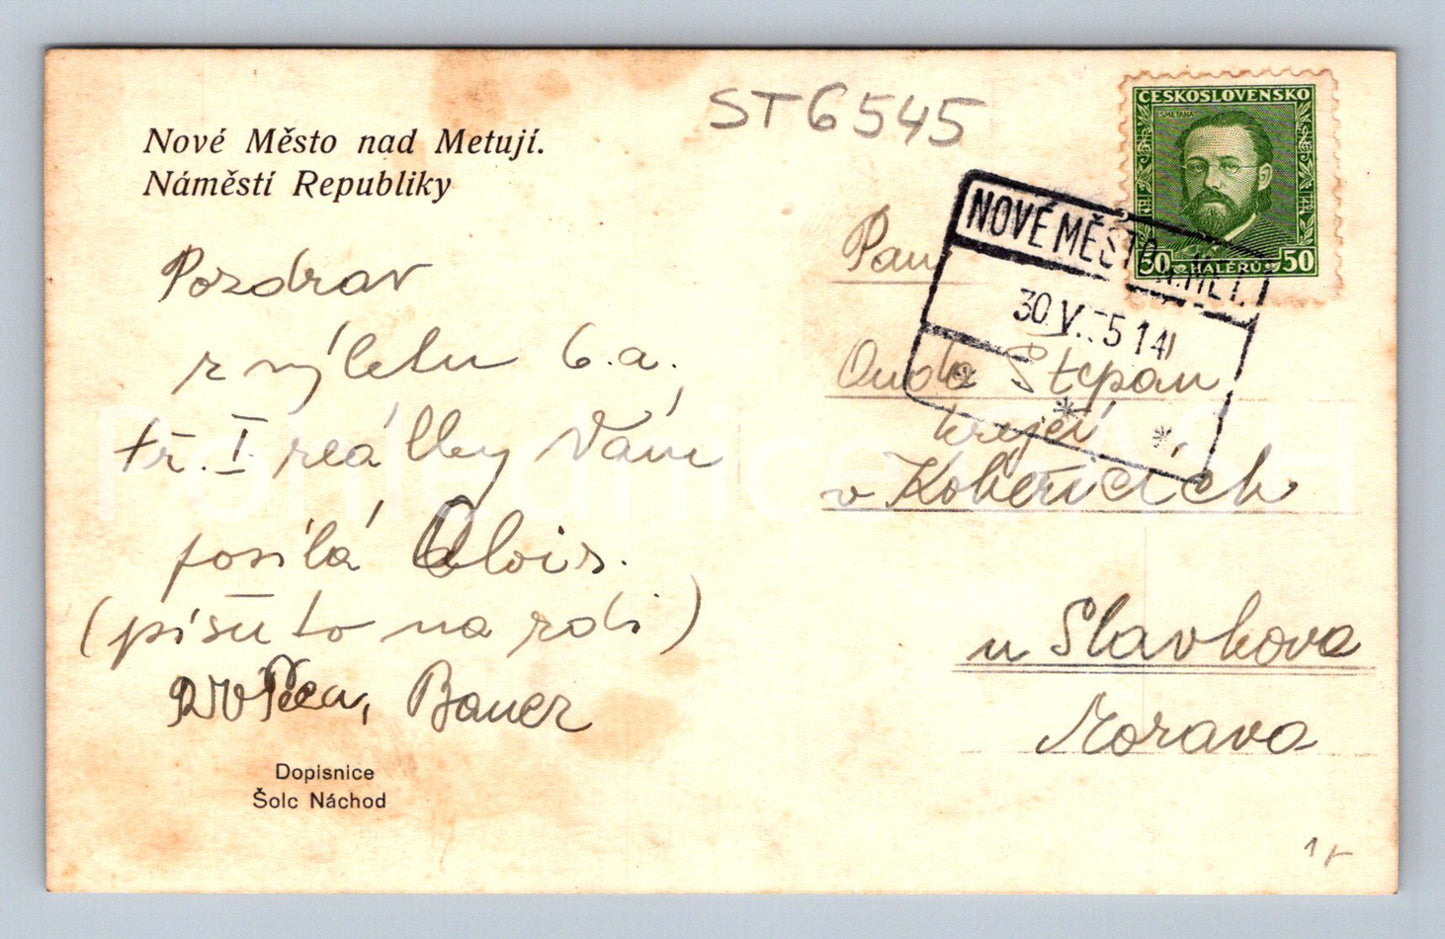 Nové Město nad Metují.
Náměstí Republiky
ST6545
ČESKOSLOVENSKO
SMETANA
50 HALÉŘŮ 50
NOVÉ MĚSTO N. MET.
30.V. 5 14
Pozdrav
z výletu 6.a.
tř. I. reálky Vám
posílá Alois.
(píšu to na zdi)
Bauer
Dopisnice
Šolc Náchod
Pan
Štěpan
krejčí
v Kobeřicích
u Slavkova
Morava